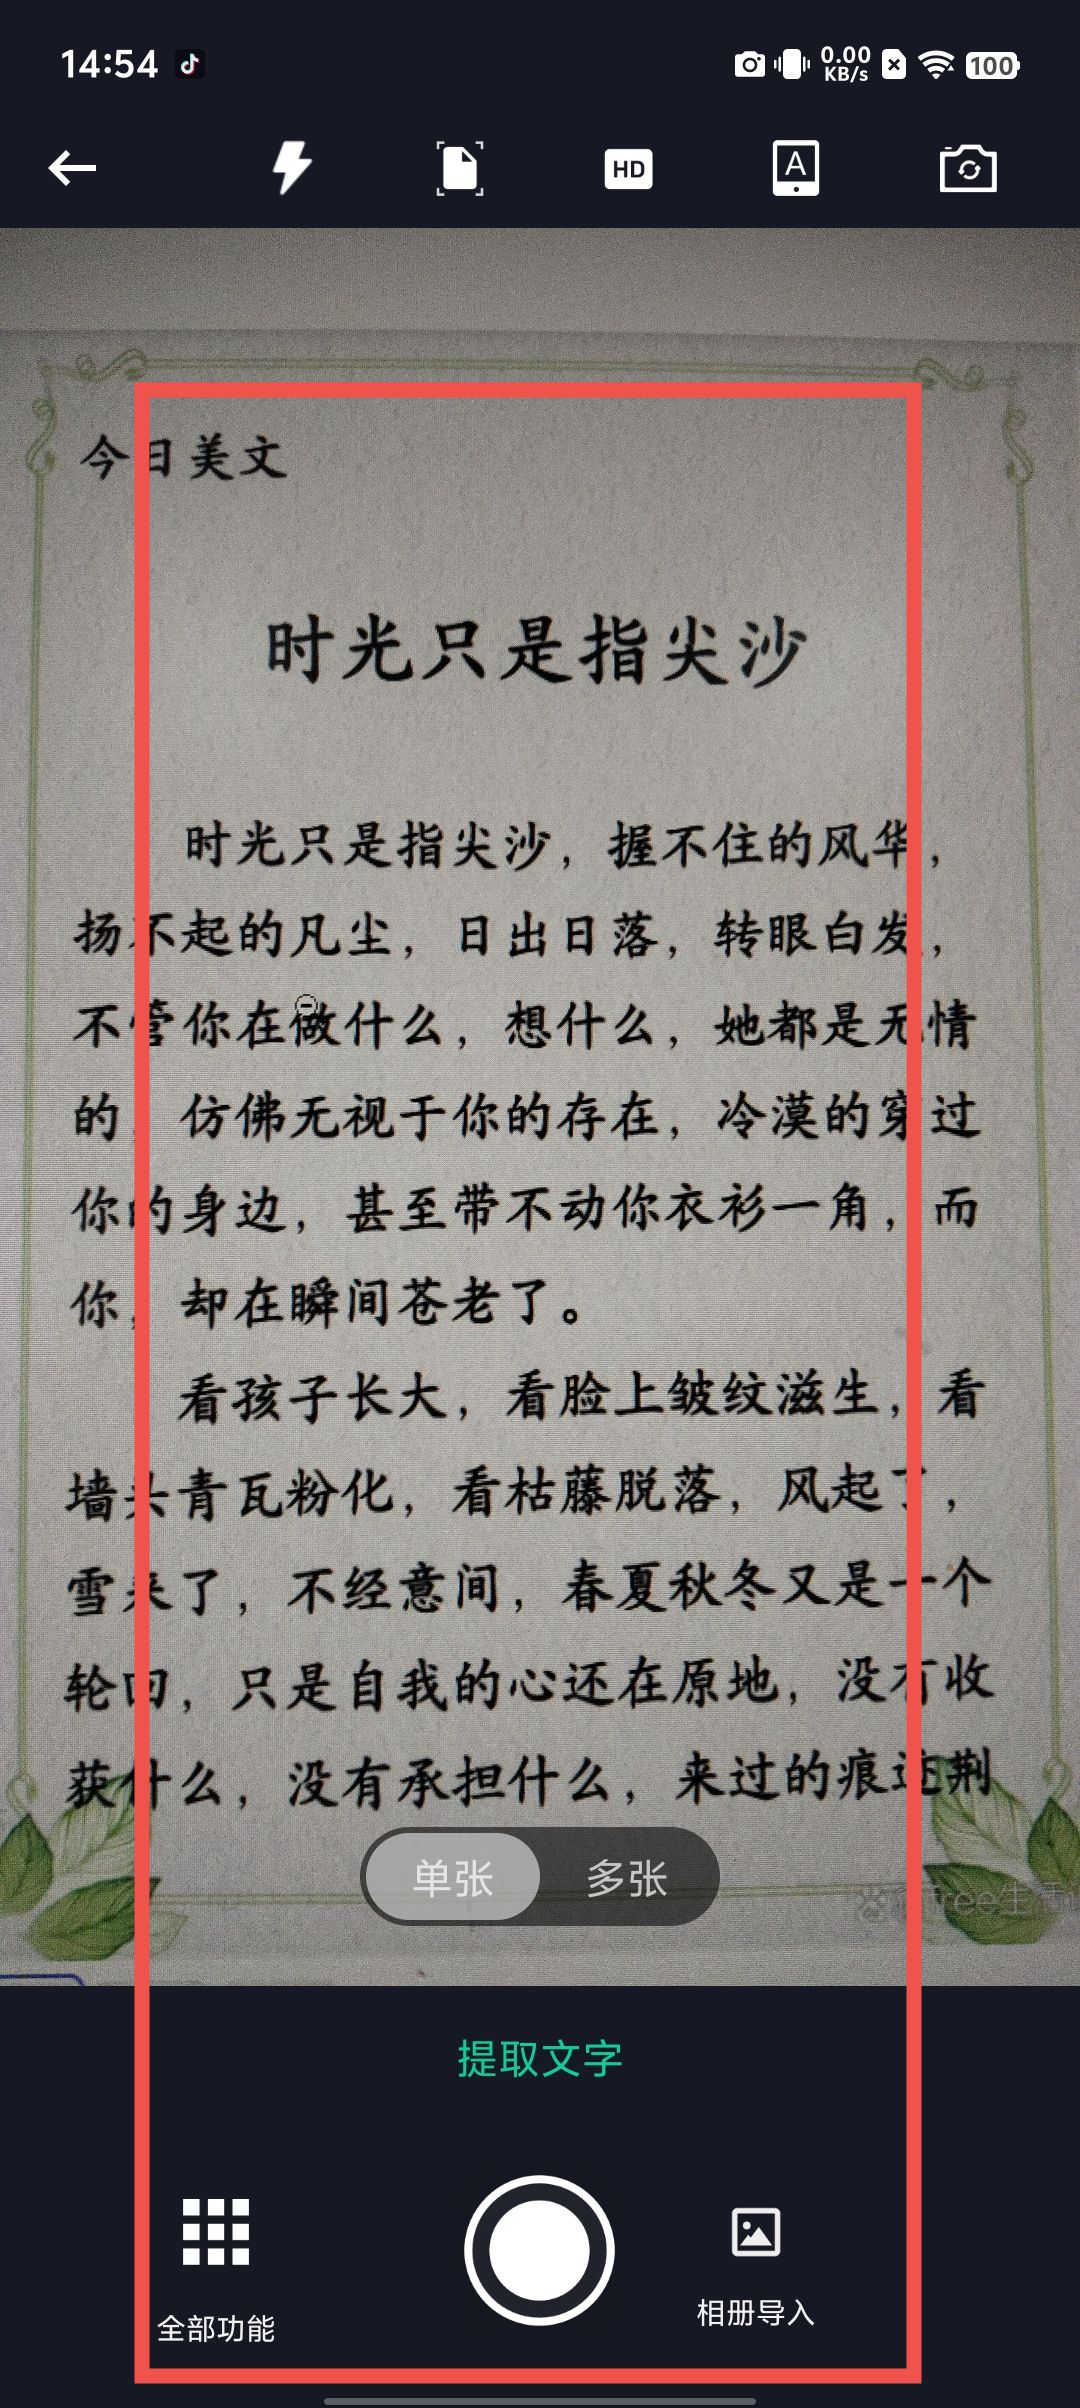 14:54
0.00
KB/s
100
HD
A
今日美文
时光只是指尖沙
时光只是指尖沙，握不住的风华，
扬不起的凡尘，日出日落，转眼白发，
不管你在做什么，想什么，她都是无情
的，仿佛无视于你的存在，冷漠的穿过
你的身边，甚至带不动你衣衫一角，而
你，却在瞬间苍老了。
看孩子长大，看脸上皱纹滋生，看
墙头青瓦粉化，看枯藤脱落，风起了，
雪来了，不经意间，春夏秋冬又是一个
轮回，只是自我的心还在原地，没有收
获什么，没有承担什么，来过的痕迹荆
单张
多张
free生活
提取文字
全部功能
相册导入